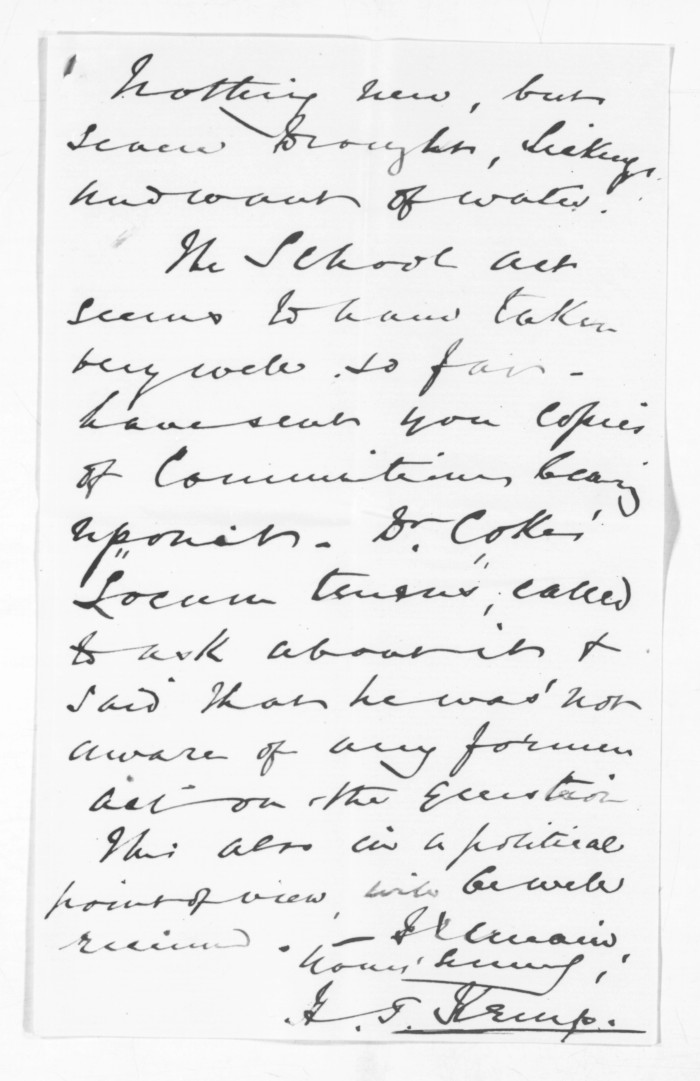 Nothing new, but
severe Drought, Sickness
and want of water.
The School act
seems to have taken
very well so far -
have sent you copies
of Communitions being
upon it - Dr. Coke's
"Locum tenens", called
to ask about it &
said that he was not
aware of any former
act on the question
This also in a political
point of view, will be well
received. - I remain
Yours sincerely,
G. T. Kemp.